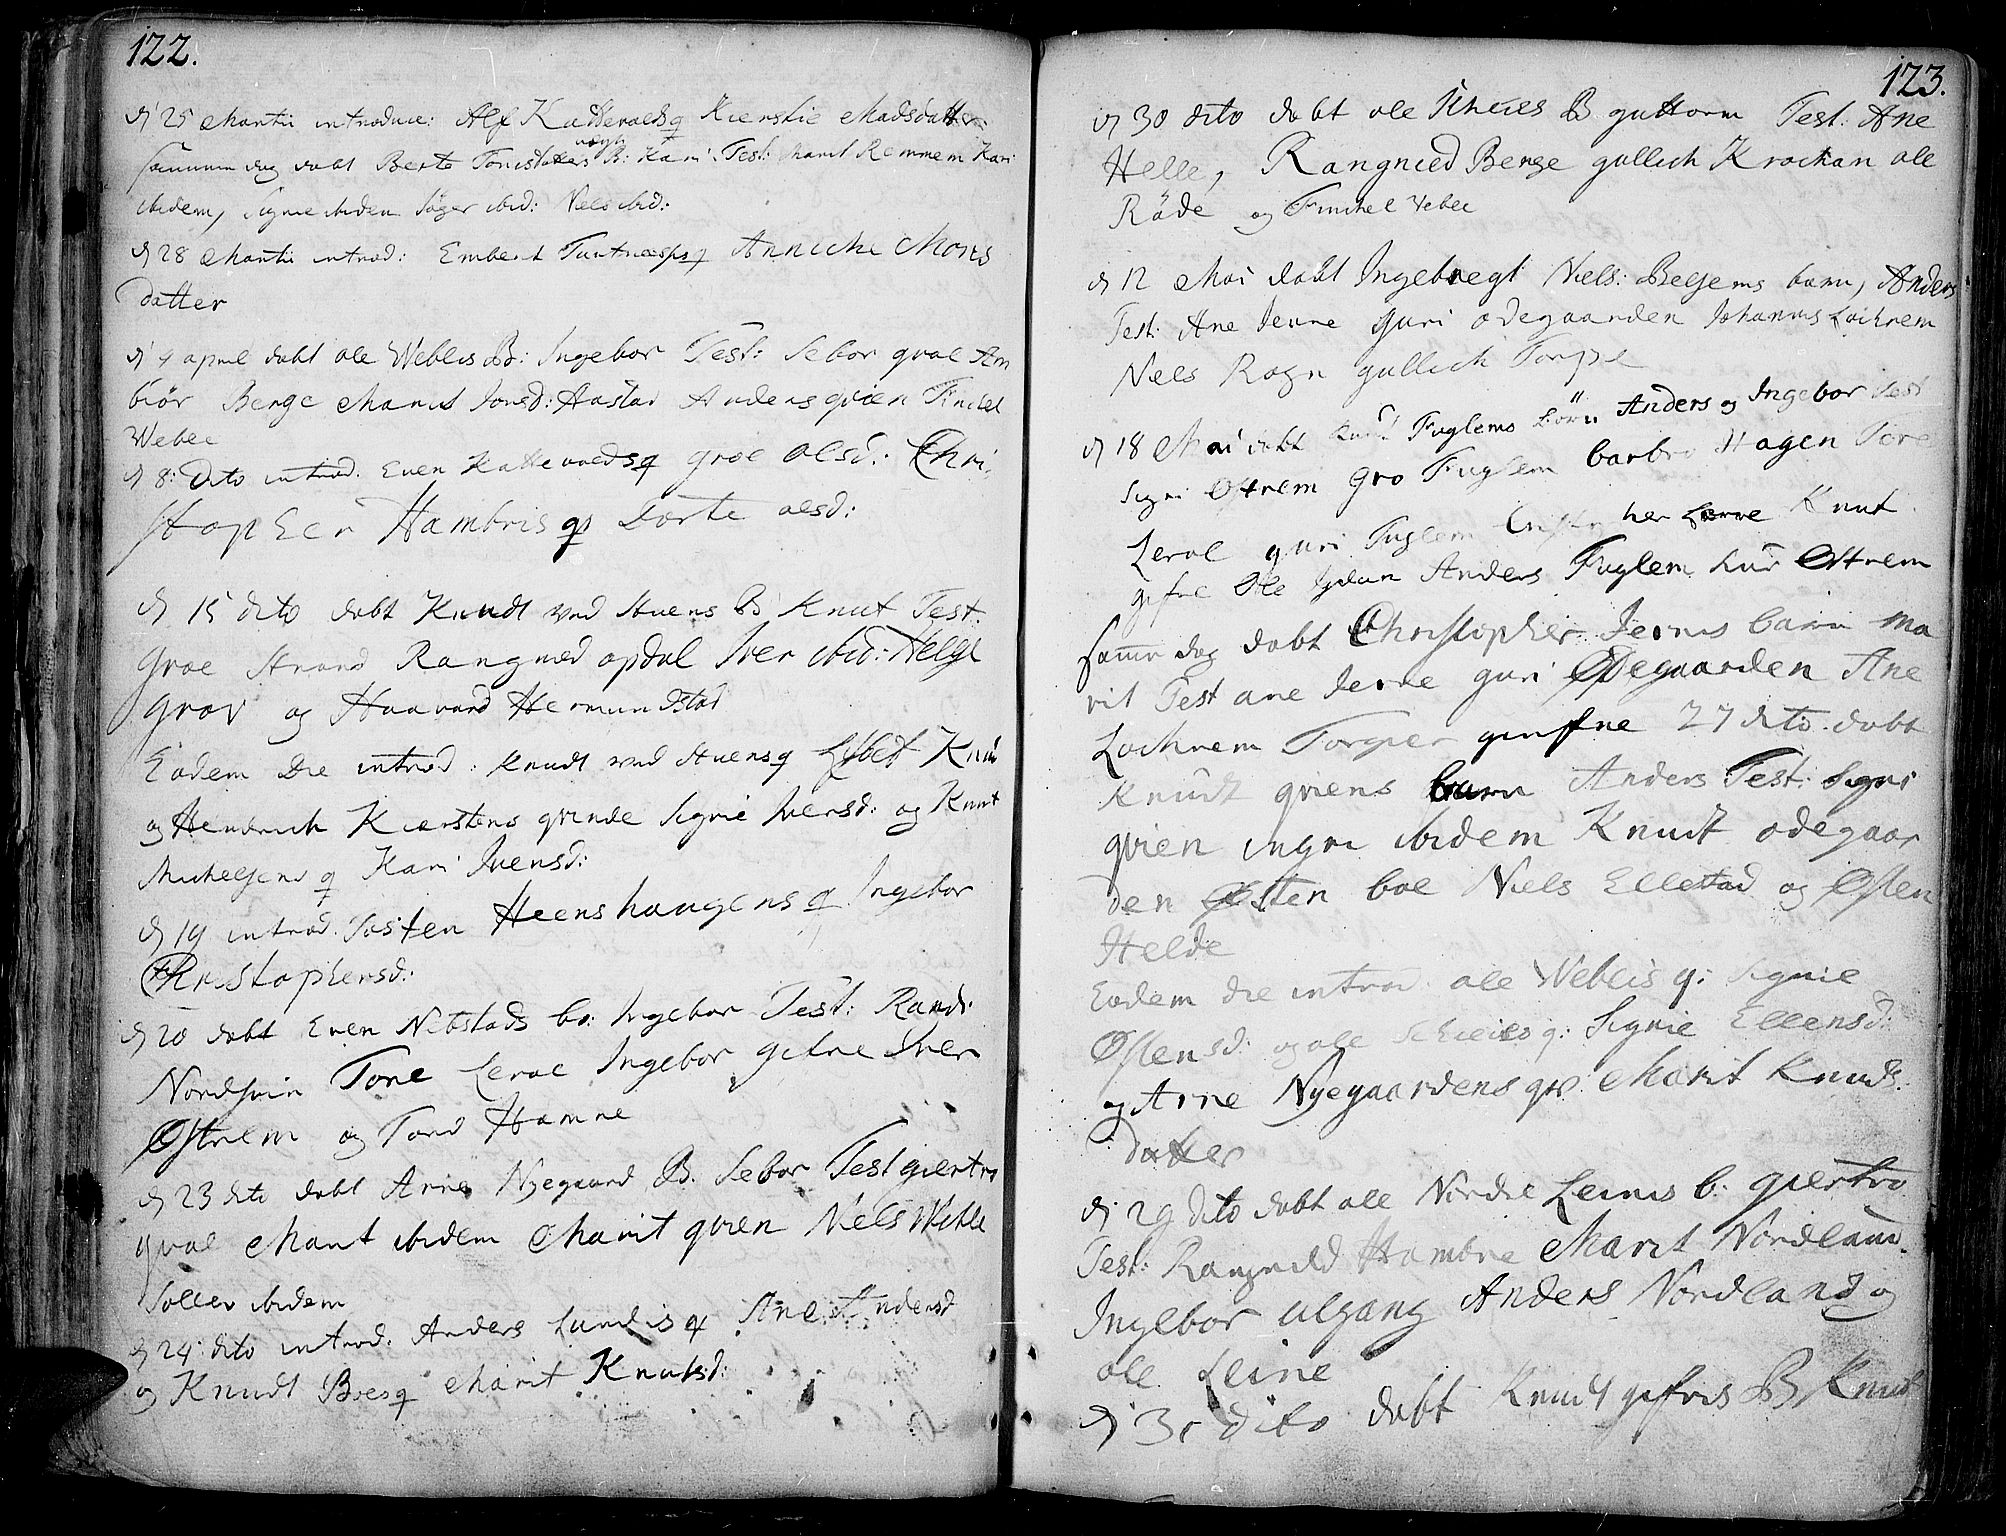 122.
d 25 Martii introduc: Alf Kattevolds q Kierstie Madsdatter
sammun dag dobt Berte B: Kari Test: Marit Remmem Kari
ibidem, Signe ibidem ibid: Niels ibid:
d 28 Martii introd: Embert q Anniche Mons
datter
d 4 april dobt ole Weblis B: Ingebor Test: Sebor qvale Am
biør Berge Marit Jonsd: Hastad Anders qvien Finchel
Weble
d 8: dito introd. Even Kattevoldsq groe olsd: Chri,
stopher Hambris q Dorte olsd:
d 15 dito dobt Knudt ved Stuens B Knut Test.
Groe Strand Rangnied opdal Iver ibid: Helge
Grov og Haavard Hermundstad
Eodem Die introd: Knudt ved Stuensq Lisbet Knu
og Hendrich Kierstens qvinde Signie Iversd: og Knut
Michelsens q Kari Ivensd:
d 19 introd. Tosten Heenshaugens q Ingebor
Christophersd:
d 20 dobt Even Nibstads b: Ingebor Test: Randi
Nordsvin Tore Leroe Ingebor gifne Iver
Østrem og Tord Hamne
d 23 dito dobt Arne Nyegaard B. Sebor Test giertru
qvale Marit ibidem Marit qvien Niels Weble
Sollev ibidem
d 24 dito introd: Anders Lundis q Ane Andersd
og Knudt Bøes q Marit Knutsd:
123.
d 30 dito dobt ole B guttorm Test: Ane
Helle, Rangnied Berge gullich Krochan ole
Røde og Finchel Veble
d 12 Mai dobt Ingebregt Niels: Belsems barn, Anders
Test: Ane Jevne Guri odegaarden Johannes Lochrem
Niels Rogn gullich Torpe
d 18 Mai dobt Knud Fuglems børn Anders og Ingebor Test
Signi Østrem Gro Fuglem barbro Hagen Tore
Leroe guri Fuglem her Knut
gifne Ole Anders Fuglem Østrem
samme dag dobt Christopher Jevnis barn Ma
rit Test ane Jevne guri Ødegaarden Ane
Lochrem Torger 27 dito dobt
Knudt qviens barn Anders Test: Signi
qvien ingri ibidem Knudt odegaar
den Østen boe Niels Ellestad og Østen
Helde
Eodem die introd. ole Weblis q: Signie
Østensd: og ole q: Signie Ellensd:
og Arne Nyegaardens qv. Marit Knuds
datter
d 29 dito dobt ole Nordre Leinis b: giertru
Test: Rangnild Hambre Marit Nordland
Ingebor Anders Nordland og
ole Leine
d 31 dito dobt Knudt gifvris B, Knud